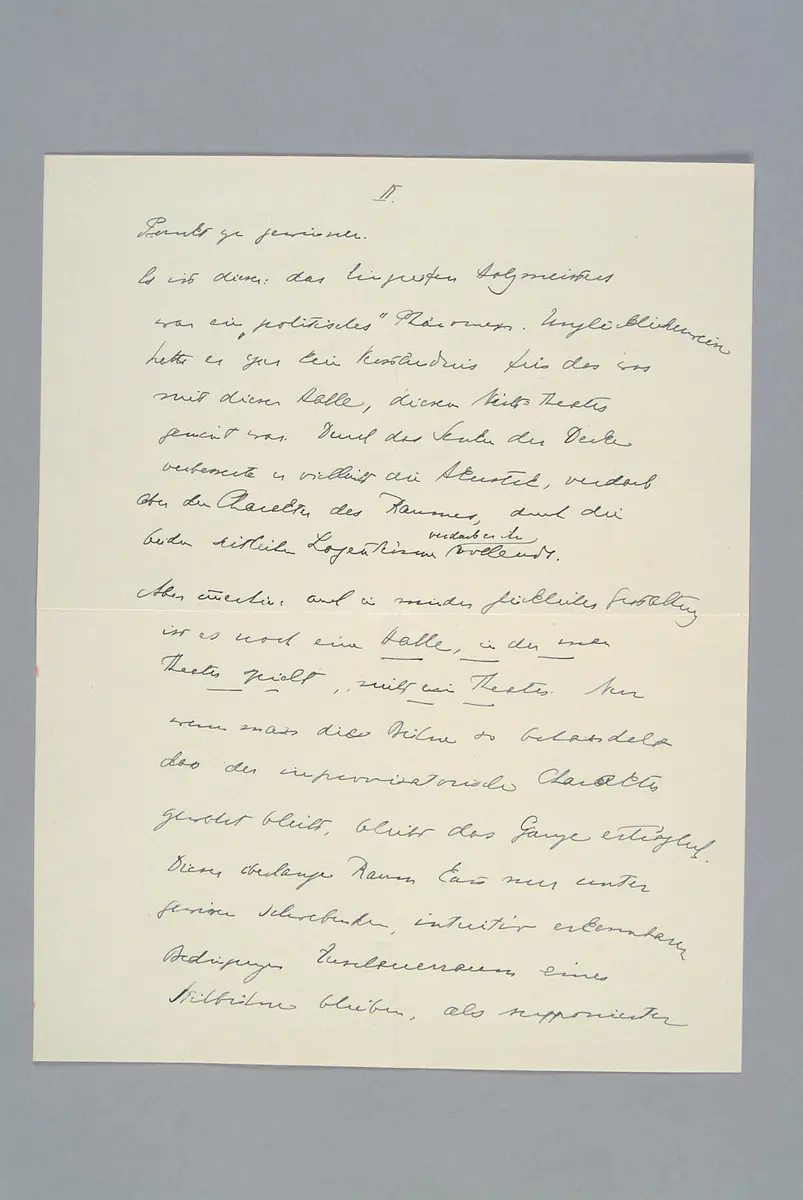 II.
Punkt zu gewinnen.
Es ist dieser: das Eingreifen Holzmeisters
war ein „politisches" Phänomen. Unglücklicherweise
hatte er gar kein Verständnis für das was
mit dieser Halle, diesem Nicht=Theater
gemeint war. Durch das Senken der Decke
verbesserte er vielleicht die Akustik, verdarb
aber den Charakter des Raumes, durch die
beiden seitlichen Logen verdarb er ihn vollends.
Aber immerhin: auch in minder glücklicher Gestaltung
ist es noch eine Halle, in der man
Theater spielt, nicht ein Theater. Nur
wenn man diese Bühne so behandelt
dass der improvisatorische Charakter
gewahrt bleibt, bleibt das Ganze erträglich.
Dieser überlange Raum kann nur unter
gewissen schwebenden, intuitiv erkennbaren
Bedingungen Zuschauerraum eines
bleiben, als supponierter